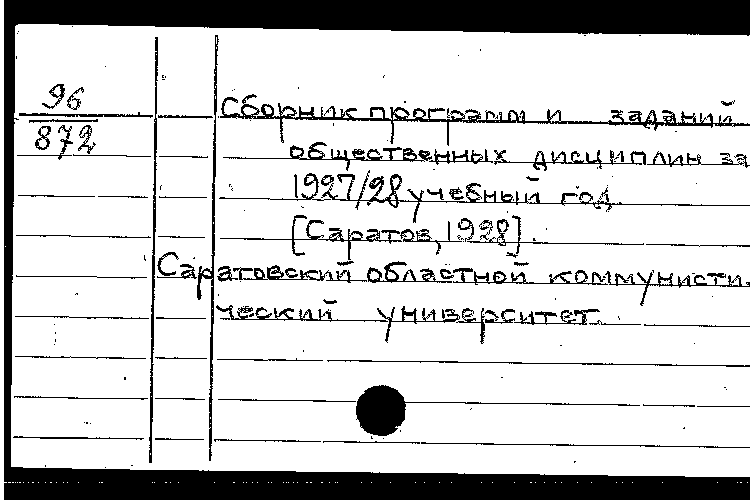 96
872
Сборник программ и заданий
общественных дисциплин за
1927/28 учебный год.
[Саратов, 1928].
Саратовский областной коммунисти-
ческий университет.